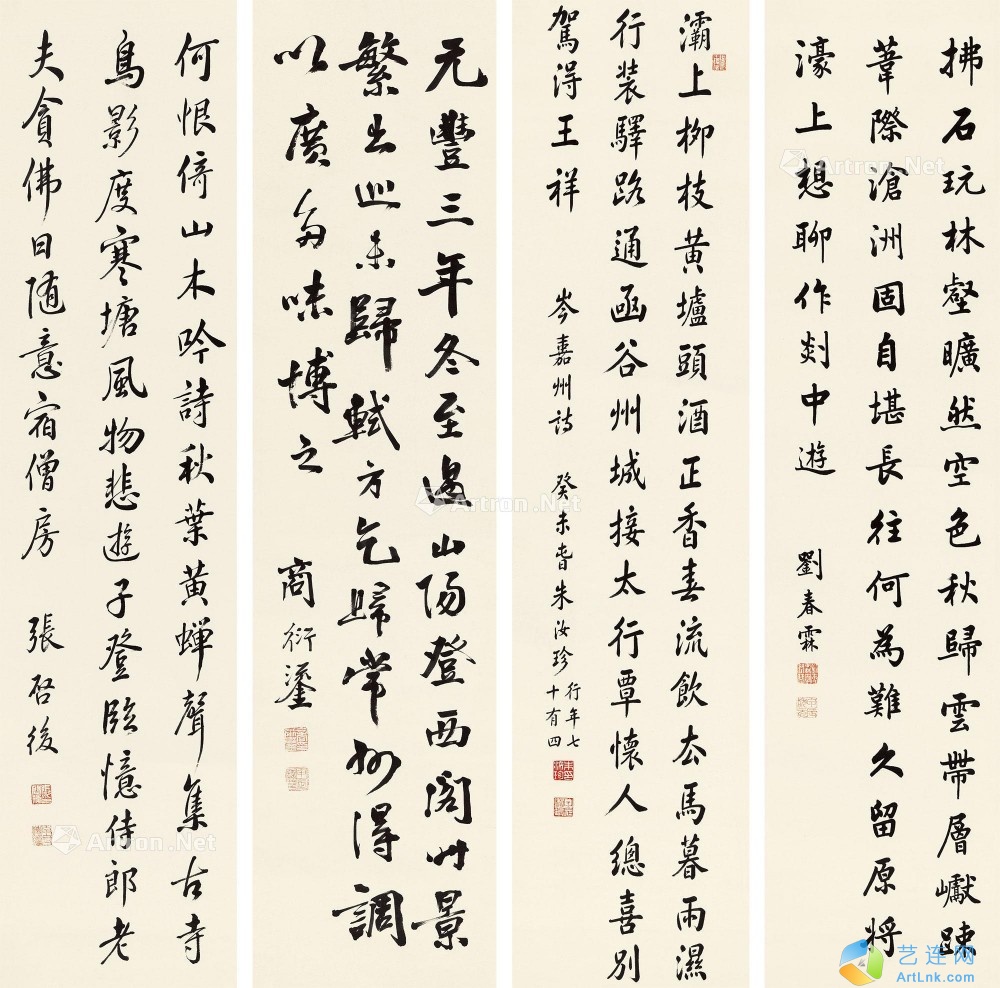 拂石玩林壑曠然空色秋歸雲帶層巘踈
葦際滄洲固自堪長往何為難久留原將
濠上想聊作剡中遊
劉春霖
灞上柳枝黃壚頭酒正香春流飲去馬暮雨濕
行裝驛路通函谷州城接太行覃懷人總喜別
駕得王祥
岑嘉州詩
癸未春朱汝珍
行年七
十有四
元豐三年冬至過山陽登西閣時景
繁出巡未歸軾方乞歸常州得調
以廣多味博之
商衍鎏
何恨倚山木吟詩秋葉黃蟬聲集古寺
鳥影度寒塘風物悲遊子登臨憶侍郎老
夫貪佛日隨意宿僧房
張啓後
Artron.Net
Artron.Net
Artron.Net
艺连网
ArtLnk.com